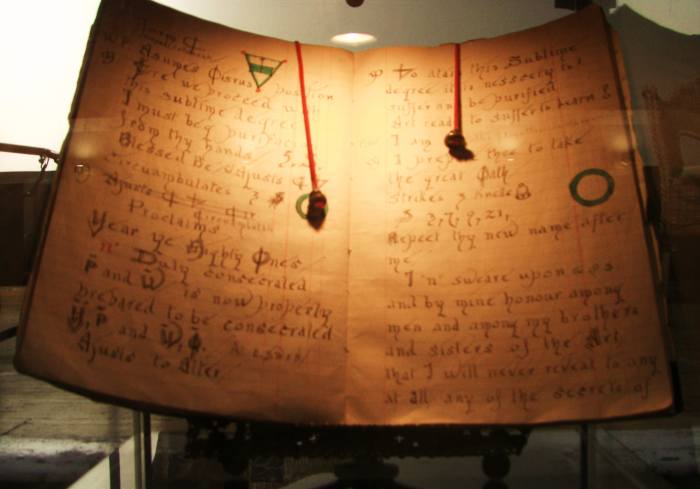 Assumes Osirus position
Ere! we proceed with
this sublime degree
I must beg purific
from thy hands
Blessed Be Ajusts
circumambulates &
Ajusts
Proclaims
Hear ye Mighty Ones
n Duly consecrated
P and W is now properly
prepared to be consecrated
H, P and W, Q.
Ajusts to Alter
To atain this Sublime
degree it is nessesry to
suffer and be purified
Art ready to suffer to Learn
I am
I prepare thee to take
the great Oath
Strikes 3 Knells
3, 7, 9, 21,
Repeat thy new name after
me
I "n" sweare upon
and by mine honour among
men and among my brothers
and sisters of the Art
that I will never reveal to any
at all any of the secrets of